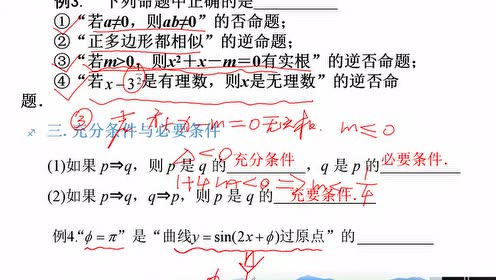 例3. 下列命题中正确的是
①“若a≠0，则ab≠0”的否命题；
②“正多边形都相似”的逆命题；
③“若m>0，则x²＋x－m＝0有实根”的逆否命题；
④“若x－3^{1/2}是有理数，则x是无理数”的逆否命
题．
③ 若 x²+x-m=0无实根. m≤0
三. 充分条件与必要条件
△<0
(1)如果 p⇒q，则 p 是 q 的 充分条件 ，q 是 p 的 必要条件.
1+4m<0 ⇒ m<-1/4
(2)如果 p⇒q，q⇒p，则 p 是 q 的 充要条件.
例4.“ϕ＝π”是“曲线y＝sin(2x＋ϕ)过原点”的